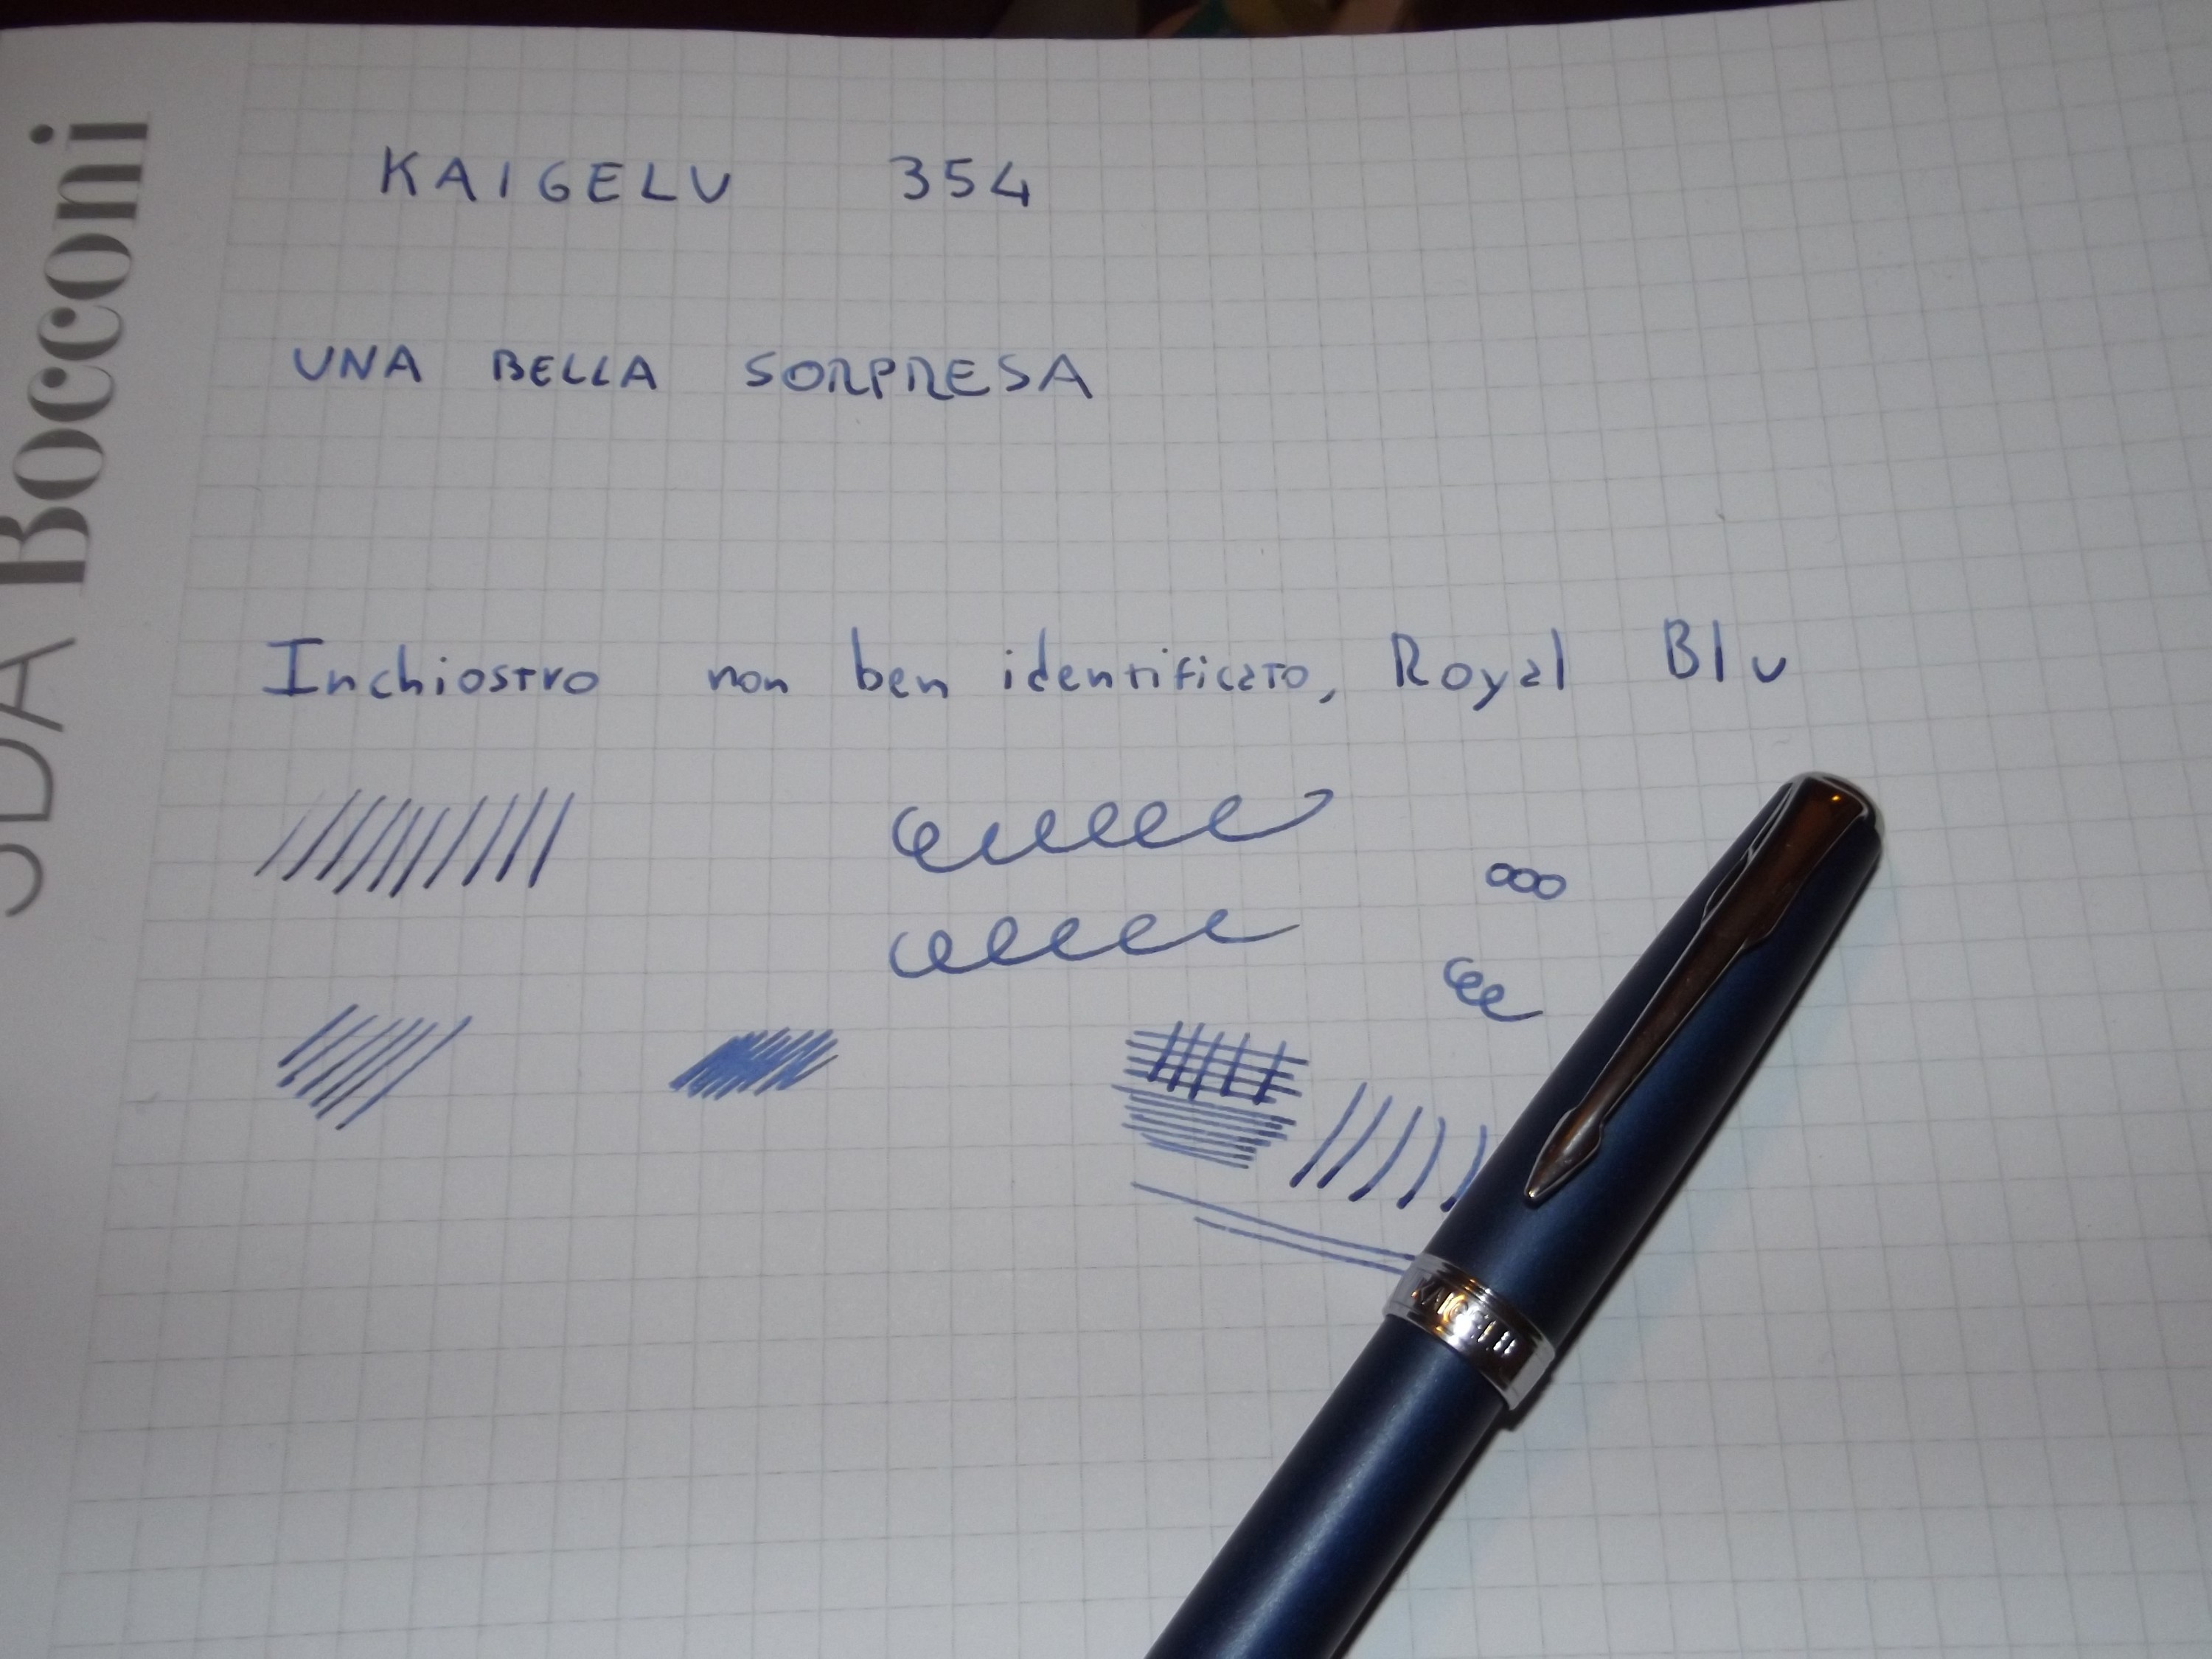 SDA Bocconi
KAIGELU 354
UNA BELLA SORPRESA
Inchiostro non ben identificato, Royal Blu
KAIGELU